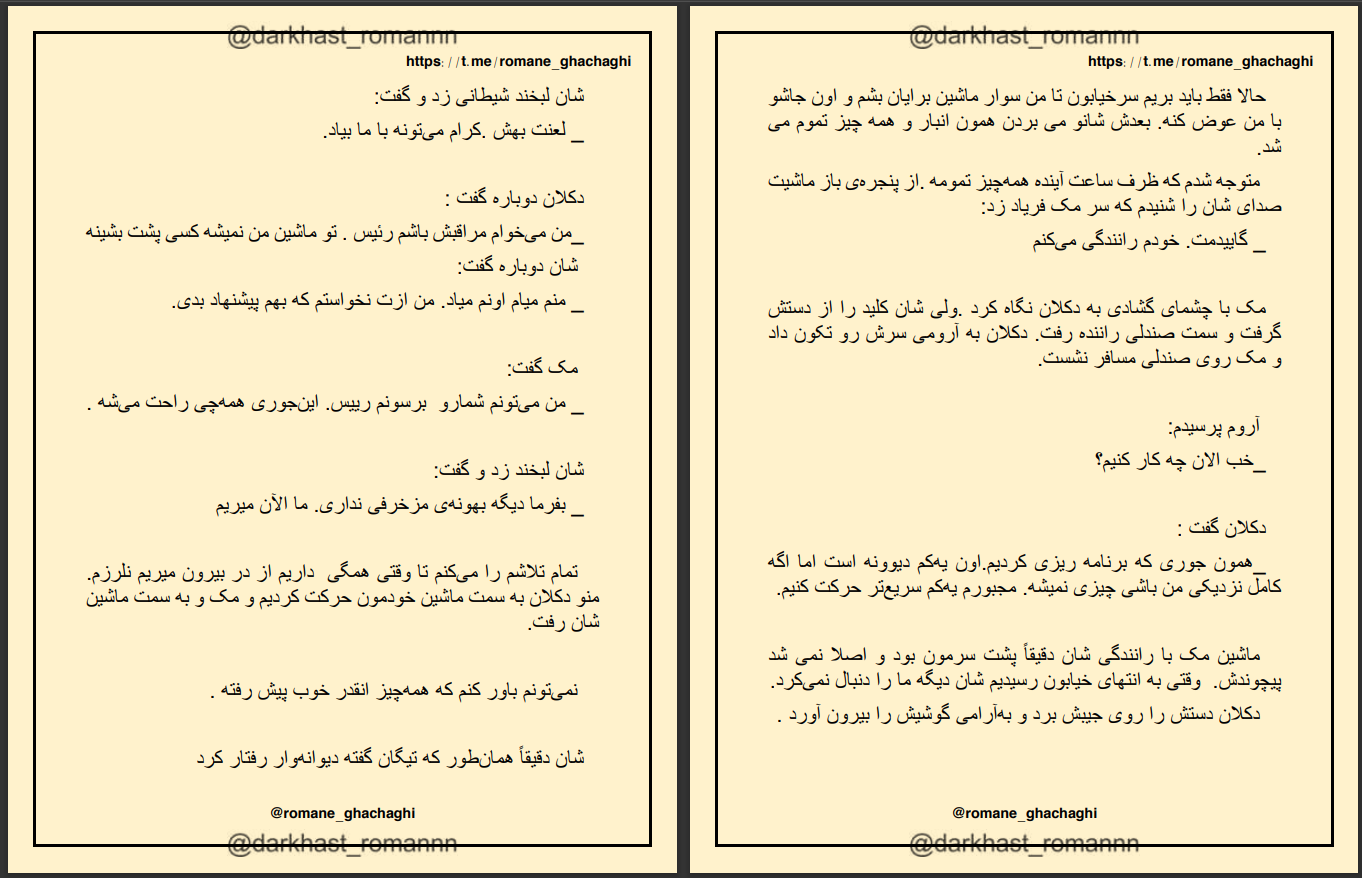 @darkhast_romannn
https://t.me/romane_ghachaghi
شان لبخند شیطانی زد و گفت:
_ لعنت بهش .کرام می‌تونه با ما بیاد.
دکلان دوباره گفت :
_من می‌خوام مراقبش باشم رئیس . تو ماشین من نمیشه کسی پشت بشینه
شان دوباره گفت:
_ منم میام اونم میاد. من ازت نخواستم که بهم پیشنهاد بدی.
مک گفت:
_ من می‌تونم شمارو برسونم رییس. این‌جوری همه‌چی راحت می‌شه .
شان لبخند زد و گفت:
_ بفرما دیگه بهونه‌ی مزخرفی نداری. ما الآن میریم
تمام تلاشم را می‌کنم تا وقتی همگی داریم از در بیرون میریم نلرزم.
منو دکلان به سمت ماشین خودمون حرکت کردیم و مک و به سمت ماشین
شان رفت.
نمی‌تونم باور کنم که همه‌چیز انقدر خوب پیش رفته .
شان دقیقاً همان‌طور که تیگان گفته دیوانه‌وار رفتار کرد
@romane_ghachaghi
@darkhast_romannn
@darkhast_romannn
https://t.me/romane_ghachaghi
حالا فقط باید بریم سرخیابون تا من سوار ماشین برایان بشم و اون جاشو
با من عوض کنه. بعدش شانو می بردن همون انبار و همه چیز تموم می
شد.
متوجه شدم که ظرف ساعت آینده همه‌چیز تمومه .از پنجره‌ی باز ماشیت
صدای شان را شنیدم که سر مک فریاد زد:
_ گاییدمت. خودم رانندگی می‌کنم
مک با چشمای گشادی به دکلان نگاه کرد .ولی شان کلید را از دستش
گرفت و سمت صندلی راننده رفت. دکلان به آرومی سرش رو تکون داد
و مک روی صندلی مسافر نشست.
آروم پرسیدم:
_خب الان چه کار کنیم؟
دکلان گفت :
_همون جوری که برنامه ریزی کردیم.اون یه‌کم دیوونه است اما اگه
کامل نزدیکی من باشی چیزی نمیشه. مجبورم یه‌کم سریع‌تر حرکت کنیم.
ماشین مک با رانندگی شان دقیقاً پشت سرمون بود و اصلا نمی شد
پیچوندش. وقتی به انتهای خیابون رسیدیم شان دیگه ما را دنبال نمی‌کرد.
دکلان دستش را روی جیبش برد و به‌آرامی گوشیش را بیرون آورد .
@romane_ghachaghi
@darkhast_romannn